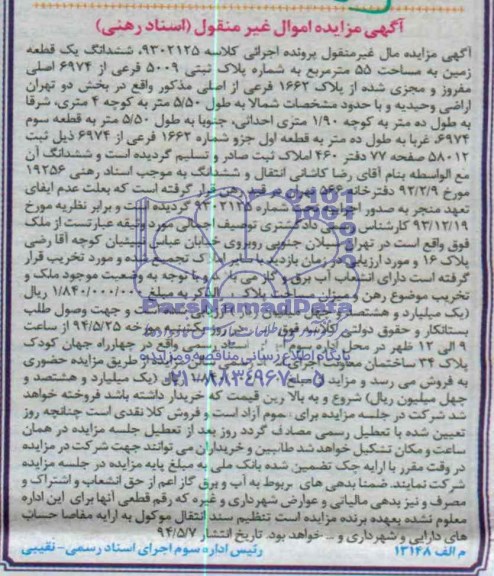 آگهی مزایده اموال غیر منقول (اسناد رهنی)
آگهی مزایده مال غیرمنقول پرونده اجرائی کلاسه ۹۳۰۲۱۲۵، ششدانگ یک قطعه
زمین به مساحت ۵۵ مترمربع به شماره پلاک ثبتی ۵۰۰۹ فرعی از ۶۹۷۴ اصلی
مفروز و مجزی شده از پلاک ۱۶۶۲ فرعی از اصلی مذکور واقع در بخش دو تهران
اراضی وحیدیه و با حدود مشخصات شمالا به طول ۵/۵۰ متر به کوچه ۴ متری، شرقا
به طول ده متر به کوچه ۱/۹۰ متری احداثی، جنوبا به طول ۵/۵۰ متر به قطعه سوم
۶۹۷۴، غربا به طول ده متر به قطعه اول جزو شماره ۱۶۶۲ فرعی از ۶۹۷۴ ذیل ثبت
۵۸۰۱۲ صفحه ۷۷ دفتر ۴۶۰ املاک ثبت صادر و تسلیم گردیده است و ششدانگ آن
مع الواسطه بنام آقای رضا کاشانی انتقال و ششدانگ به موجب اسناد رهنی ۱۹۲۵۶
مورخ ۹۲/۲/۹ دفترخانه ۵۶۶ تهران در قید رهن قرار گرفته است که بعلت عدم ایفای
تعهد منجر به صدور اجرائیه تحت شماره ۹۳۰۲۱۲۵ گردیده است و برابر نظریه مورخ
۹۳/۱۲/۱۹ کارشناس رسمی دادگستری توصیف اجمالی مورد وثیقه عبارتست از ملک
فوق واقع است در تهران سبلان جنوبی روبروی خیابان عباس شیبیان کوچه آقا رضی
پلاک ۱۶ و مورد ارزیابی در زمان بازدید با سایر املاک تجمیع شده و مورد تخریب قرار
گرفته است دارای انشعاب آب برق و گاز می باشد و با توجه به وضعیت موجود ملک و
تخریب موضوع رهن و پلاک به مبلغ ۱/۸۴۰/۰۰۰/۰۰۰ ریال
(یک میلیارد و هشتصد و چهل میلیون ریال) و جهت وصول طلب
بستانکار و حقوق دولتی کلاسه فوق روز یکشنبه مورخه ۹۴/۵/۲۵ از ساعت
۹ الی ۱۲ ظهر در محل اداره سوم واقع در چهارراه جهان کودک
پلاک ۳۴ ساختمان معاونت اجرای از طریق مزایده حضوری
به فروش می رسد و مزایده از مبلغ ریال (یک میلیارد و هشتصد و
چهل میلیون ریال) شروع و به بالا رین قیمت که خریدار داشته باشد فروخته خواهد
شد شرکت در جلسه مزایده برای عموم آزاد است و فروش کلا نقدی است چنانچه روز
تعیین شده با تعطیل رسمی مصادف گردد روز بعد از تعطیل جلسه مزایده در همان
ساعت و مکان تشکیل خواهد شد طالبین و خریداران می توانند جهت شرکت در مزایده
در وقت مقرر با ارایه چک تضمین شده بانک ملی به مبلغ پایه مزایده در جلسه مزایده
شرکت نمایند. ضمنا بدهی های مربوط به آب و برق گاز اعم از حق انشعاب و اشتراک و
مصرف و نیز بدهی مالیاتی و عوارض شهرداری و غیره که رقم قطعی آنها برای این اداره
معلوم نشده بعهده برنده مزایده است تنظیم سند انتقال موکول به ارایه مفاصا حساب
های دارایی و شهرداری و ... خواهد بود. تاریخ انتشار ۹۴/۵/۷
م الف ۱۳۱۴۸ رئیس اداره سوم اجرای اسناد رسمی- نقیبی
ParsNamadData
پایگاه اطلاع رسانی مناقصه و مزایده
۰۲۱-۸۸۳۴۹۶۷۰-۵